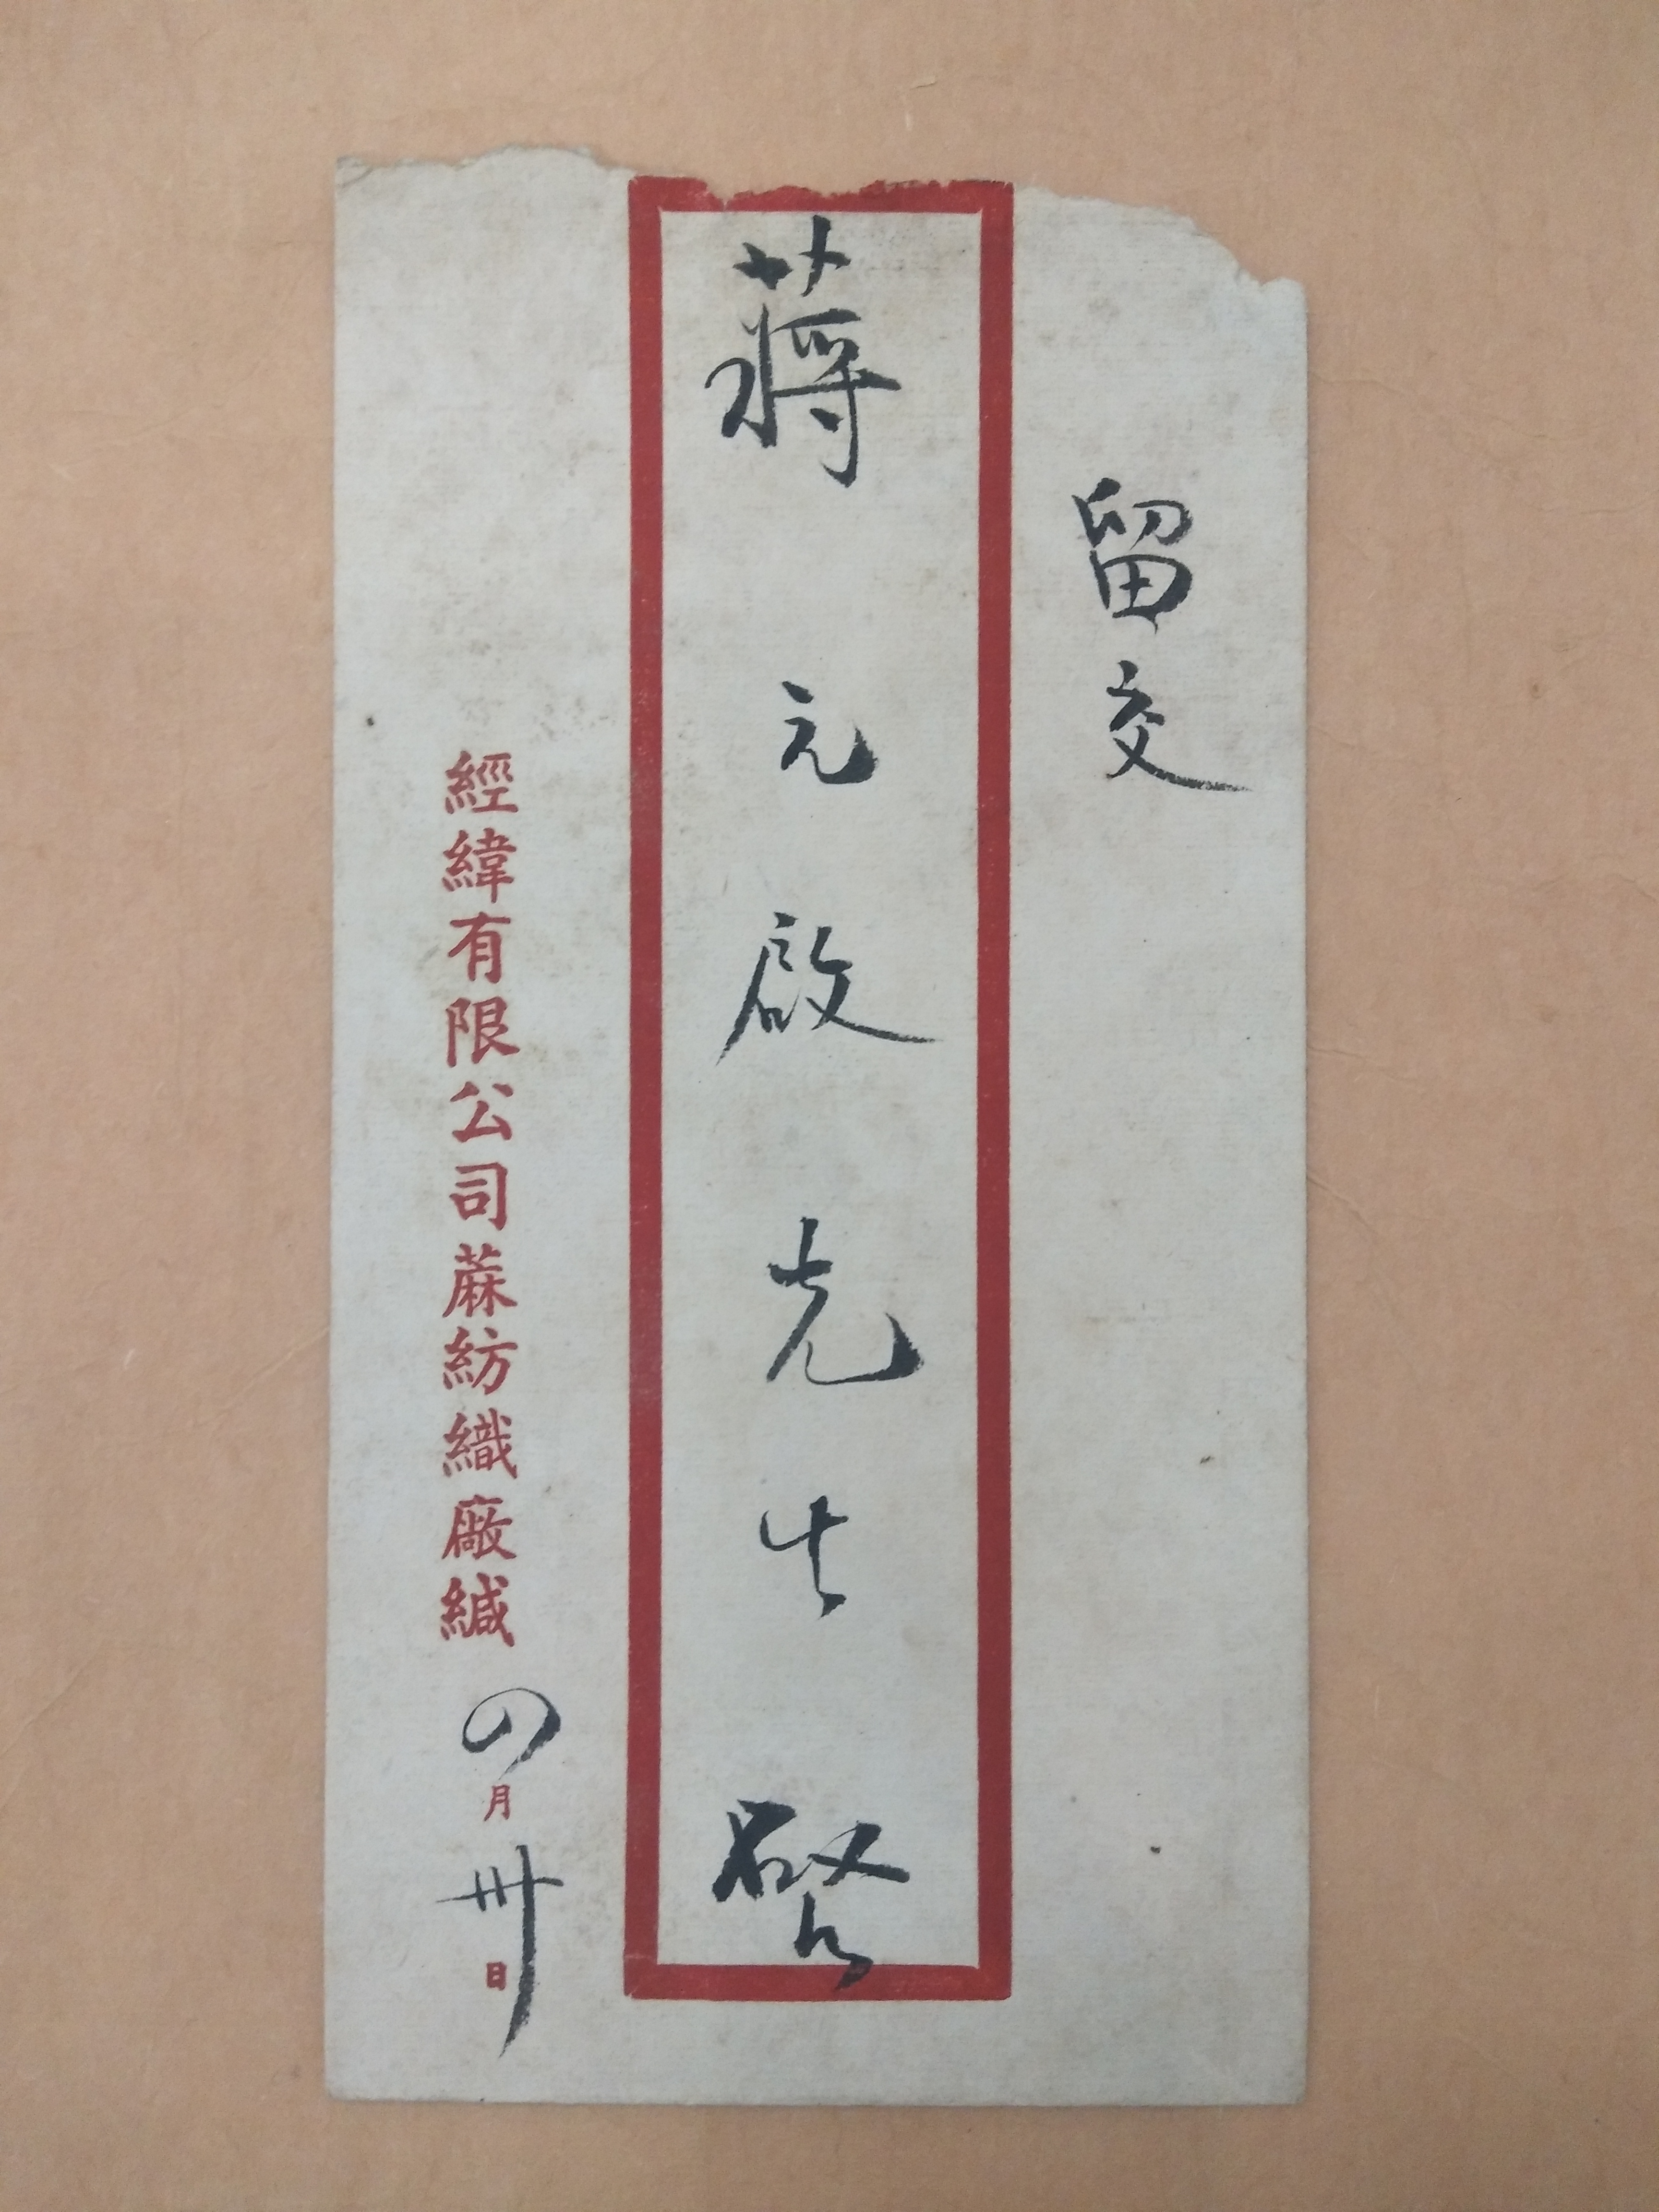 留交
蔣元啟先生 啓
經緯有限公司蔴紡織廠緘 四月卅日